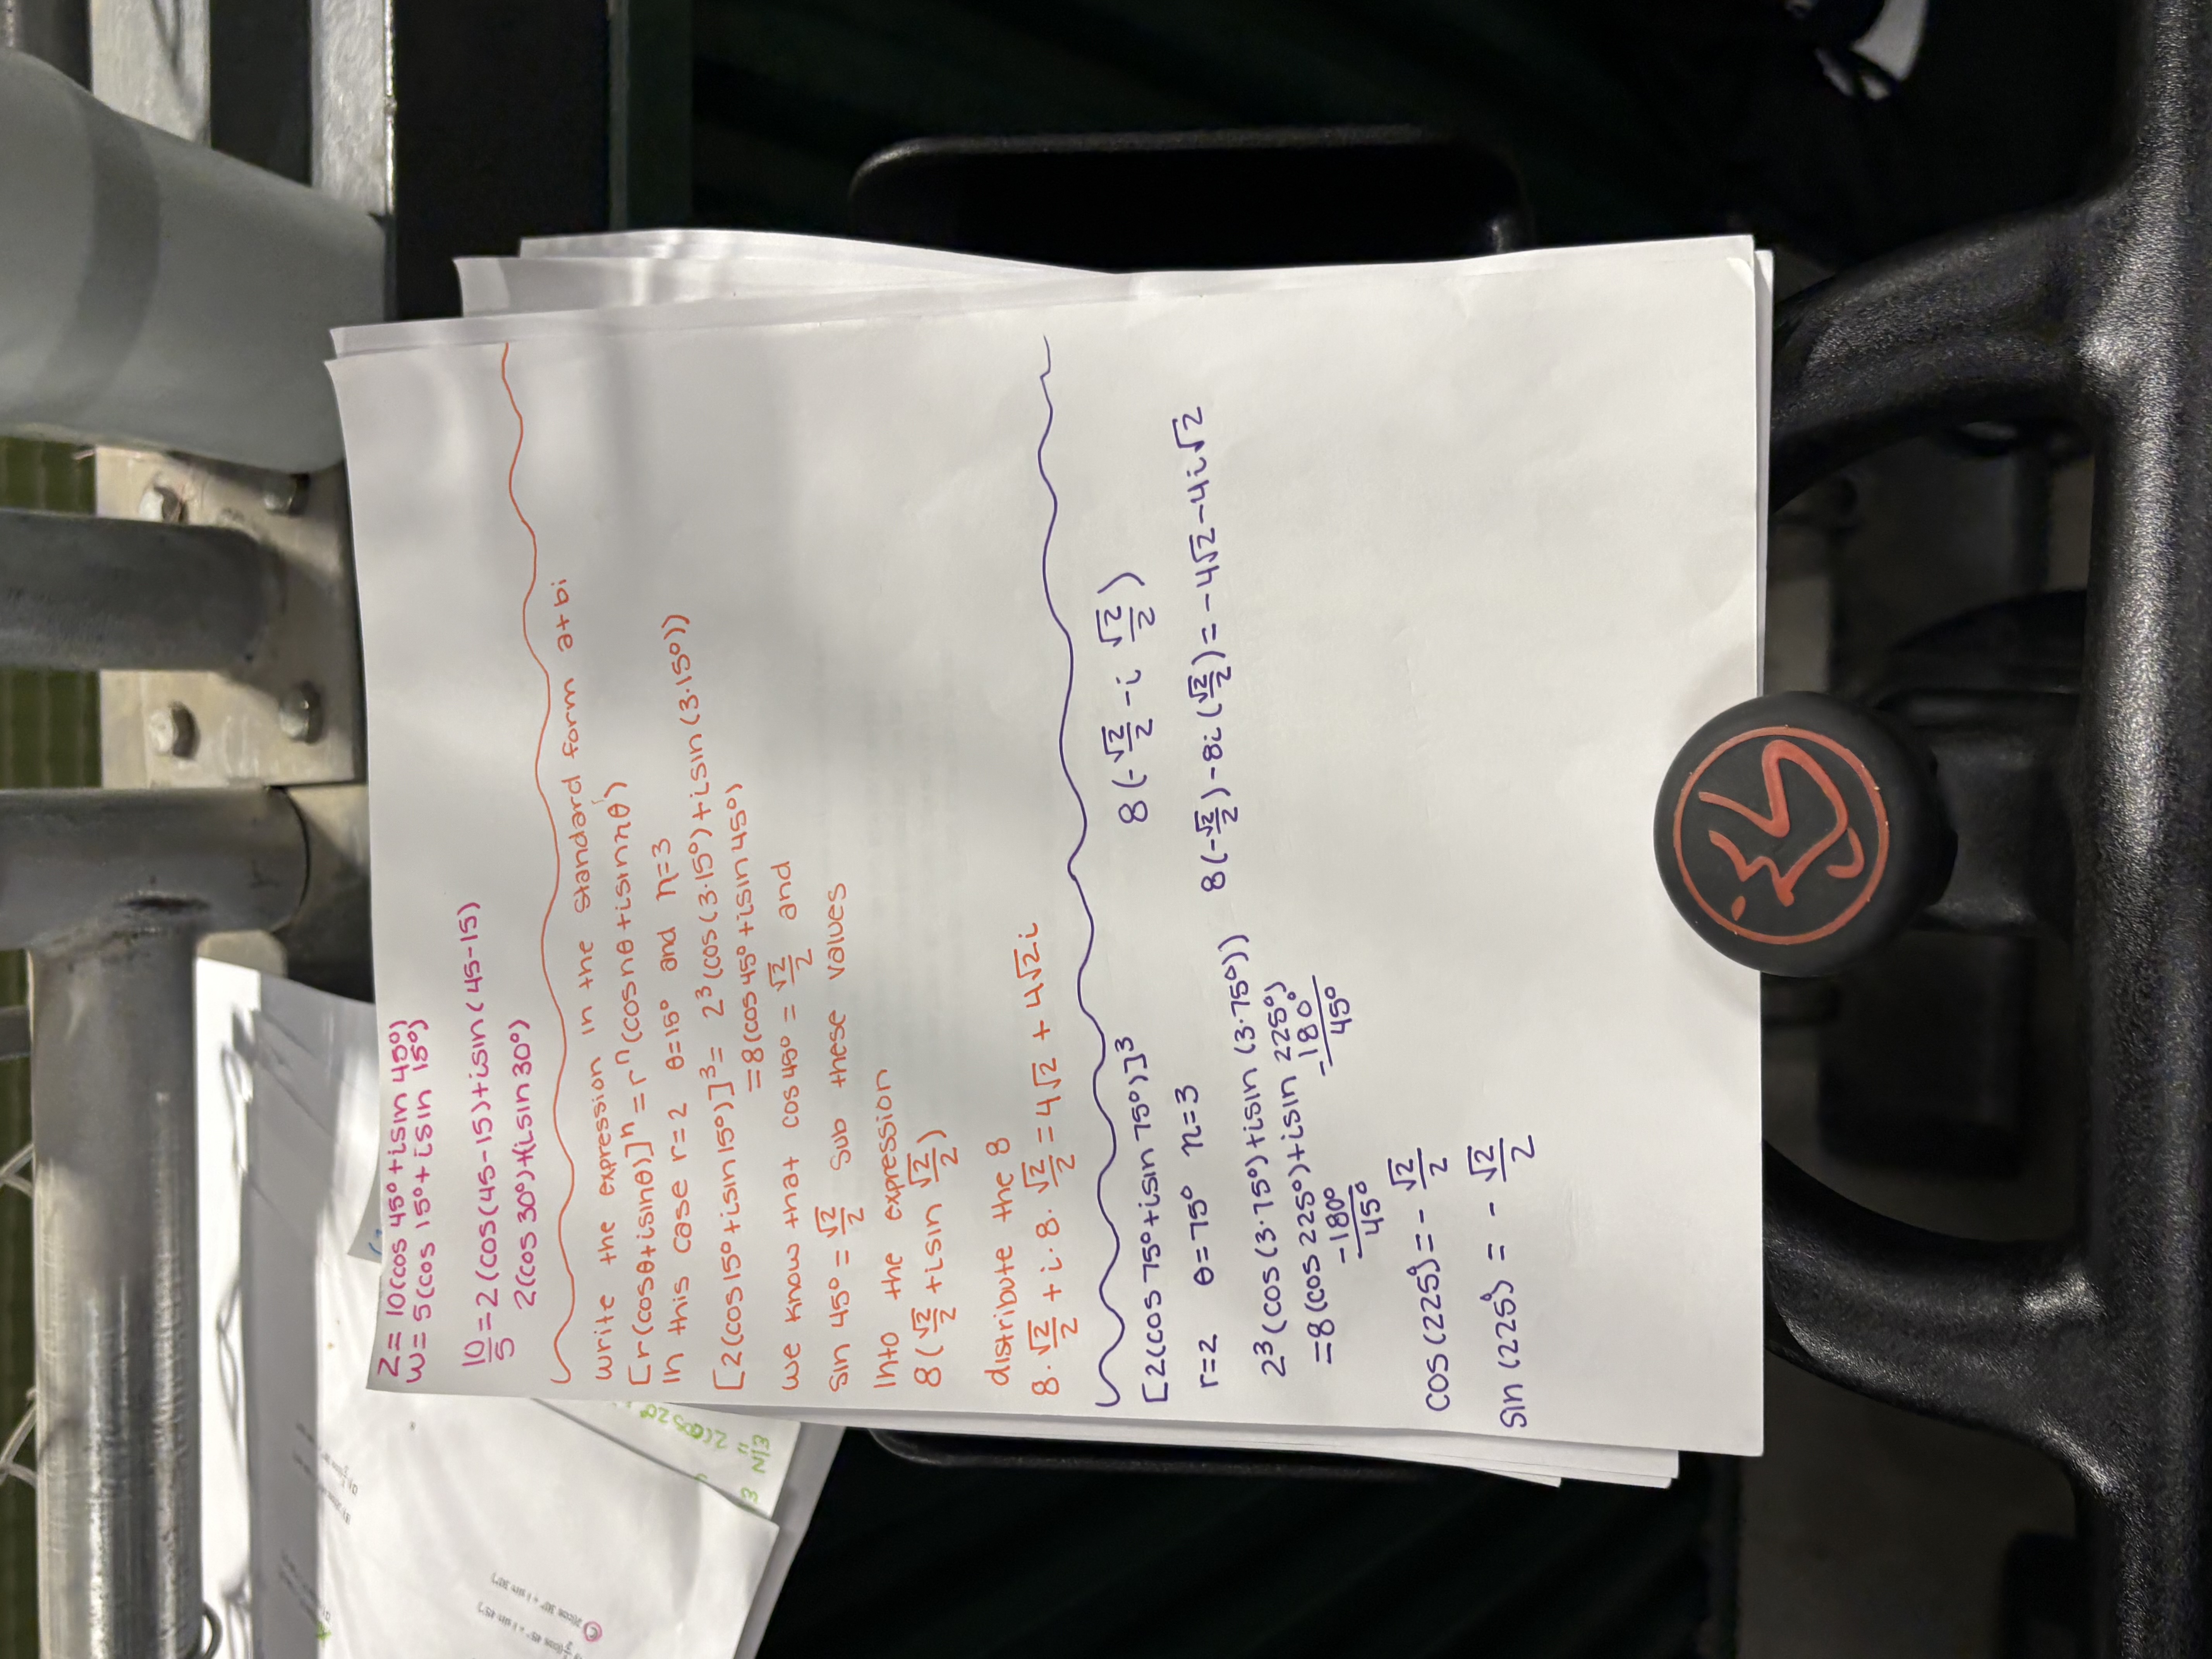 z = 10(cos 45° + i sin 45°)
w = 5(cos 15° + i sin 15°)
10/5 = 2(cos(45-15) + isin(45-15)
2(cos 30°) + (isin 30°)
write the expression in the standard form a+bi
[r(cosθ + isinθ)]ⁿ = rⁿ(cosnθ + isinnθ)
In this case r=2 θ=15° and n=3
[2(cos15° + isin15°)]³ = 2³(cos(3·15°) + isin(3·15°))
= 8(cos 45° + isin 45°)
we know that cos 45° = √2/2 and
sin 45° = √2/2 sub these values
into the expression
8(√2/2 + isin √2/2)
distribute the 8
8·√2/2 + i·8·√2/2 = 4√2 + 4√2i
[2(cos 75° + isin 75°)]³
r=2 θ=75° n=3
2³(cos(3·75°) + isin(3·75°))
= 8(cos 225°) + isin 225°)
-180° -180°
45° 45°
cos(225°) = -√2/2
sin(225°) = -√2/2
8(-√2/2 - i √2/2)
8(-√2/2) - 8i(√2/2) = -4√2 - 4i√2
2(cos 20°
z/w =